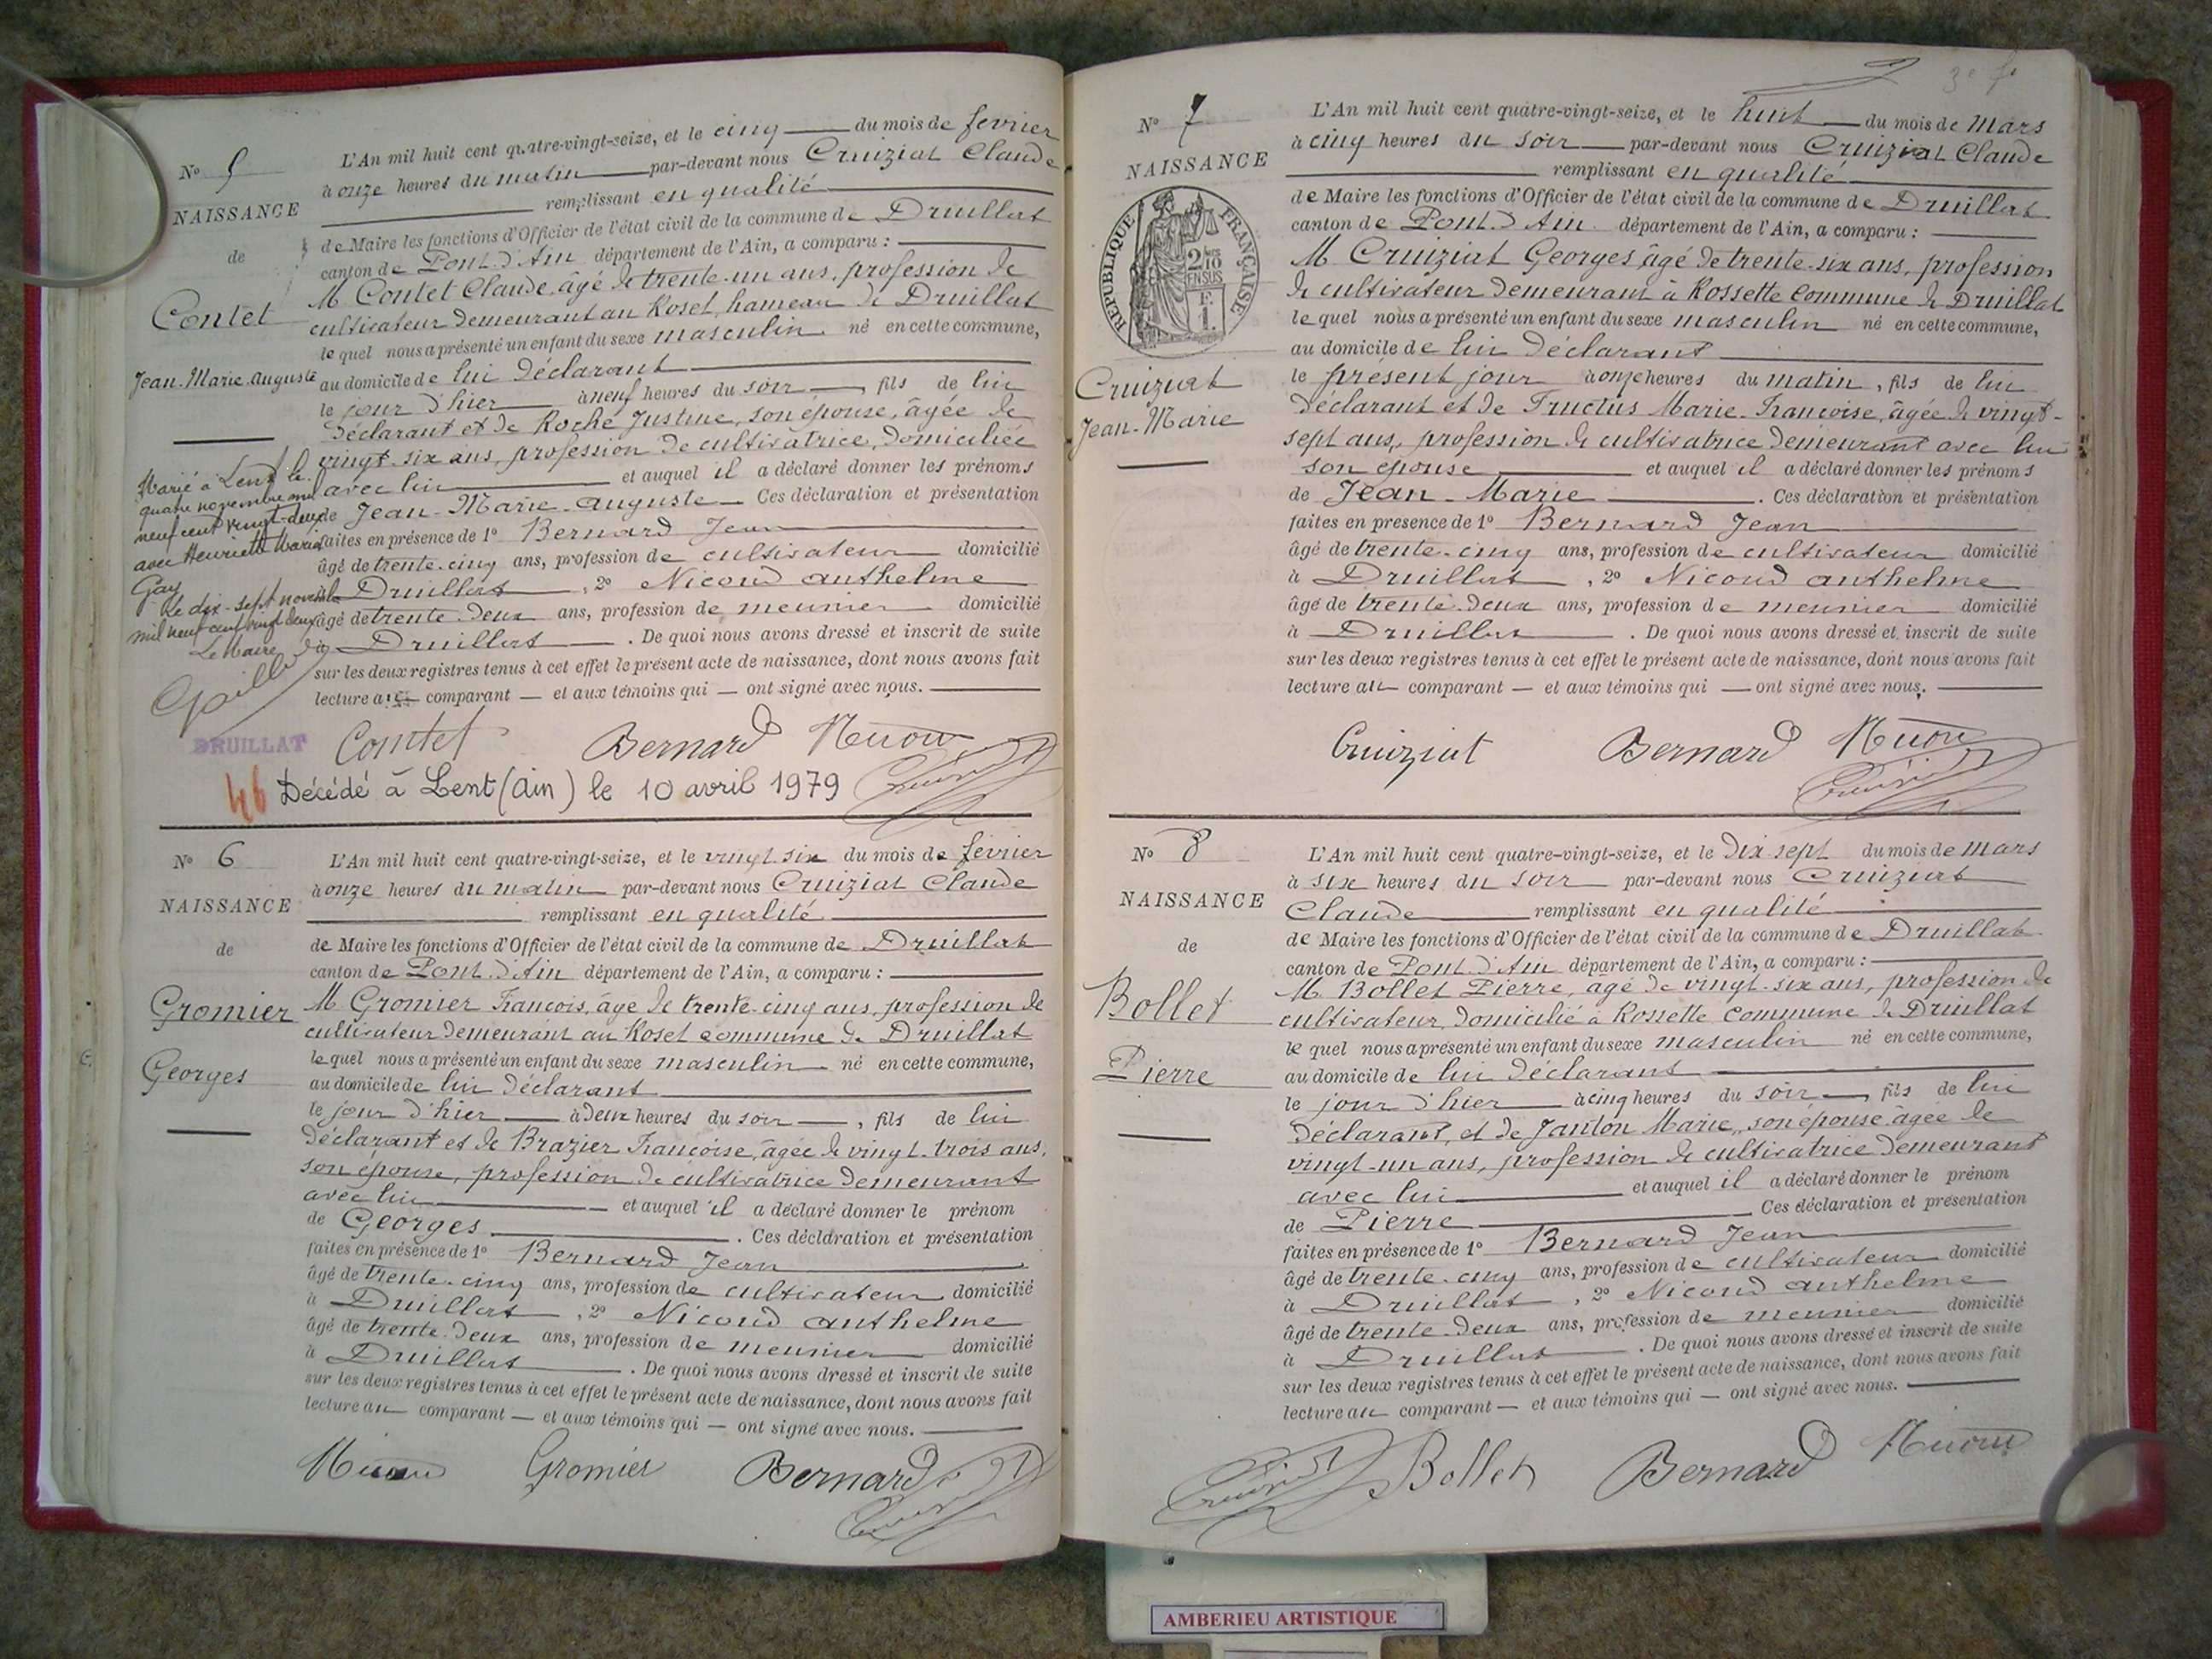 N° 5
NAISSANCE
de
Contet
Jean-Marie-Auguste
L'An mil huit cent quatre-vingt-seize, et le cinq du mois de fevrier
à onze heures du matin par-devant nous Cruiziat Claude
remplissant en qualité
de Maire les fonctions d'Officier de l'état civil de la commune de Druillat
canton de Pont-d'Ain département de l'Ain, a comparu :
M Contet Claude, âgé de trente-un ans, profession de
cultivateur demeurant au Roset, hameau de Druillat
lequel nous a présenté un enfant du sexe masculin né en cette commune,
au domicile de lui déclarant
le jour d'hier à neuf heures du soir, fils de lui
déclarant et de Roche Justine, son épouse, âgée de
vingt-six ans, profession de cultivatrice, domiciliée
avec lui et auquel il a déclaré donner les prénoms
de Jean-Marie-Auguste Ces déclaration et présentation
faites en présence de 1° Bernard Jean
âgé de trente-cinq ans, profession de cultivateur domicilié
à Druillat, 2° Nicoud Anthelme
âgé de trente-deux ans, profession de meunier domicilié
à Druillat. De quoi nous avons dressé et inscrit de suite
sur les deux registres tenus à cet effet le présent acte de naissance, dont nous avons fait
lecture au comparant — et aux témoins qui — ont signé avec nous.
Marié à Lent le
quatre novembre mil
neuf cent vingt-deux
avec Henriette Marie
Gay
Le dix-sept novembre
mil neuf cent vingt deux
Le Maire
DRUILLAT
Comtet Bernard Nicoud
46 Décédé à Lent (Ain) le 10 avril 1979
N° 6
NAISSANCE
de
Gromier
Georges
L'An mil huit cent quatre-vingt-seize, et le vingt-six du mois de fevrier
à onze heures du matin par-devant nous Cruiziat Claude
remplissant en qualité
de Maire les fonctions d'Officier de l'état civil de la commune de Druillat
canton de Pont-d'Ain département de l'Ain, a comparu :
M Gromier Francois, âgé de trente-cinq ans, profession de
cultivateur demeurant au Roset commune de Druillat
lequel nous a présenté un enfant du sexe masculin né en cette commune,
au domicile de lui déclarant
le jour d'hier à deux heures du soir, fils de lui
déclarant et de Brazier Francoise, âgée de vingt-trois ans,
son épouse, profession de cultivatrice demeurant
avec lui et auquel il a déclaré donner le prénom
de Georges. Ces déclaration et présentation
faites en présence de 1° Bernard Jean
âgé de trente-cinq ans, profession de cultivateur domicilié
à Druillat, 2° Nicoud Anthelme
âgé de trente-deux ans, profession de meunier domicilié
à Druillat. De quoi nous avons dressé et inscrit de suite
sur les deux registres tenus à cet effet le présent acte de naissance, dont nous avons fait
lecture au comparant — et aux témoins qui — ont signé avec nous.
Nicoud Gromier Bernard
3e fo
N° 7
NAISSANCE
RÉPUBLIQUE FRANÇAISE
2/10 EN SUS
F. 1.
Cruiziat
Jean-Marie
L'An mil huit cent quatre-vingt-seize, et le huit du mois de Mars
à cinq heures du soir par-devant nous Cruiziat Claude
remplissant en qualité
de Maire les fonctions d'Officier de l'état civil de la commune de Druillat
canton de Pont-d'Ain département de l'Ain, a comparu :
M Cruiziat Georges âgé de trente-six ans, profession
de cultivateur demeurant à Rossette commune de Druillat
lequel nous a présenté un enfant du sexe masculin né en cette commune,
au domicile de lui déclarant
le présent jour à onze heures du matin, fils de lui
déclarant et de Fructus Marie-Francoise, âgée de vingt-
sept ans, profession de cultivatrice demeurant avec lui
son épouse et auquel il a déclaré donner les prénoms
de Jean-Marie. Ces déclaration et présentation
faites en présence de 1° Bernard Jean
âgé de trente-cinq ans, profession de cultivateur domicilié
à Druillat, 2° Nicoud Anthelme
âgé de trente-deux ans, profession de meunier domicilié
à Druillat. De quoi nous avons dressé et inscrit de suite
sur les deux registres tenus à cet effet le présent acte de naissance, dont nous avons fait
lecture au comparant — et aux témoins qui — ont signé avec nous.
Cruiziat Bernard Nicoud
N° 8
NAISSANCE
de
Bollet
Pierre
L'An mil huit cent quatre-vingt-seize, et le dix-sept du mois de Mars
à six heures du soir par-devant nous Cruiziat
Claude remplissant en qualité
de Maire les fonctions d'Officier de l'état civil de la commune de Druillat
canton de Pont-d'Ain département de l'Ain, a comparu :
M. Bollet Pierre, âgé de vingt-six ans, profession de
cultivateur, domicilié à Rossette commune de Druillat
lequel nous a présenté un enfant du sexe masculin né en cette commune,
au domicile de lui déclarant
le jour d'hier à cinq heures du soir, fils de lui
déclarant, et de Janton Marie, son épouse âgée de
vingt-un ans, profession de cultivatrice demeurant
avec lui et auquel il a déclaré donner le prénom
de Pierre Ces déclaration et présentation
faites en présence de 1° Bernard Jean
âgé de trente-cinq ans, profession de cultivateur domicilié
à Druillat, 2° Nicoud Anthelme
âgé de trente-deux ans, profession de meunier domicilié
à Druillat. De quoi nous avons dressé et inscrit de suite
sur les deux registres tenus à cet effet le présent acte de naissance, dont nous avons fait
lecture au comparant — et aux témoins qui — ont signé avec nous.
Bollet Bernard Nicoud
AMBERIEU ARTISTIQUE